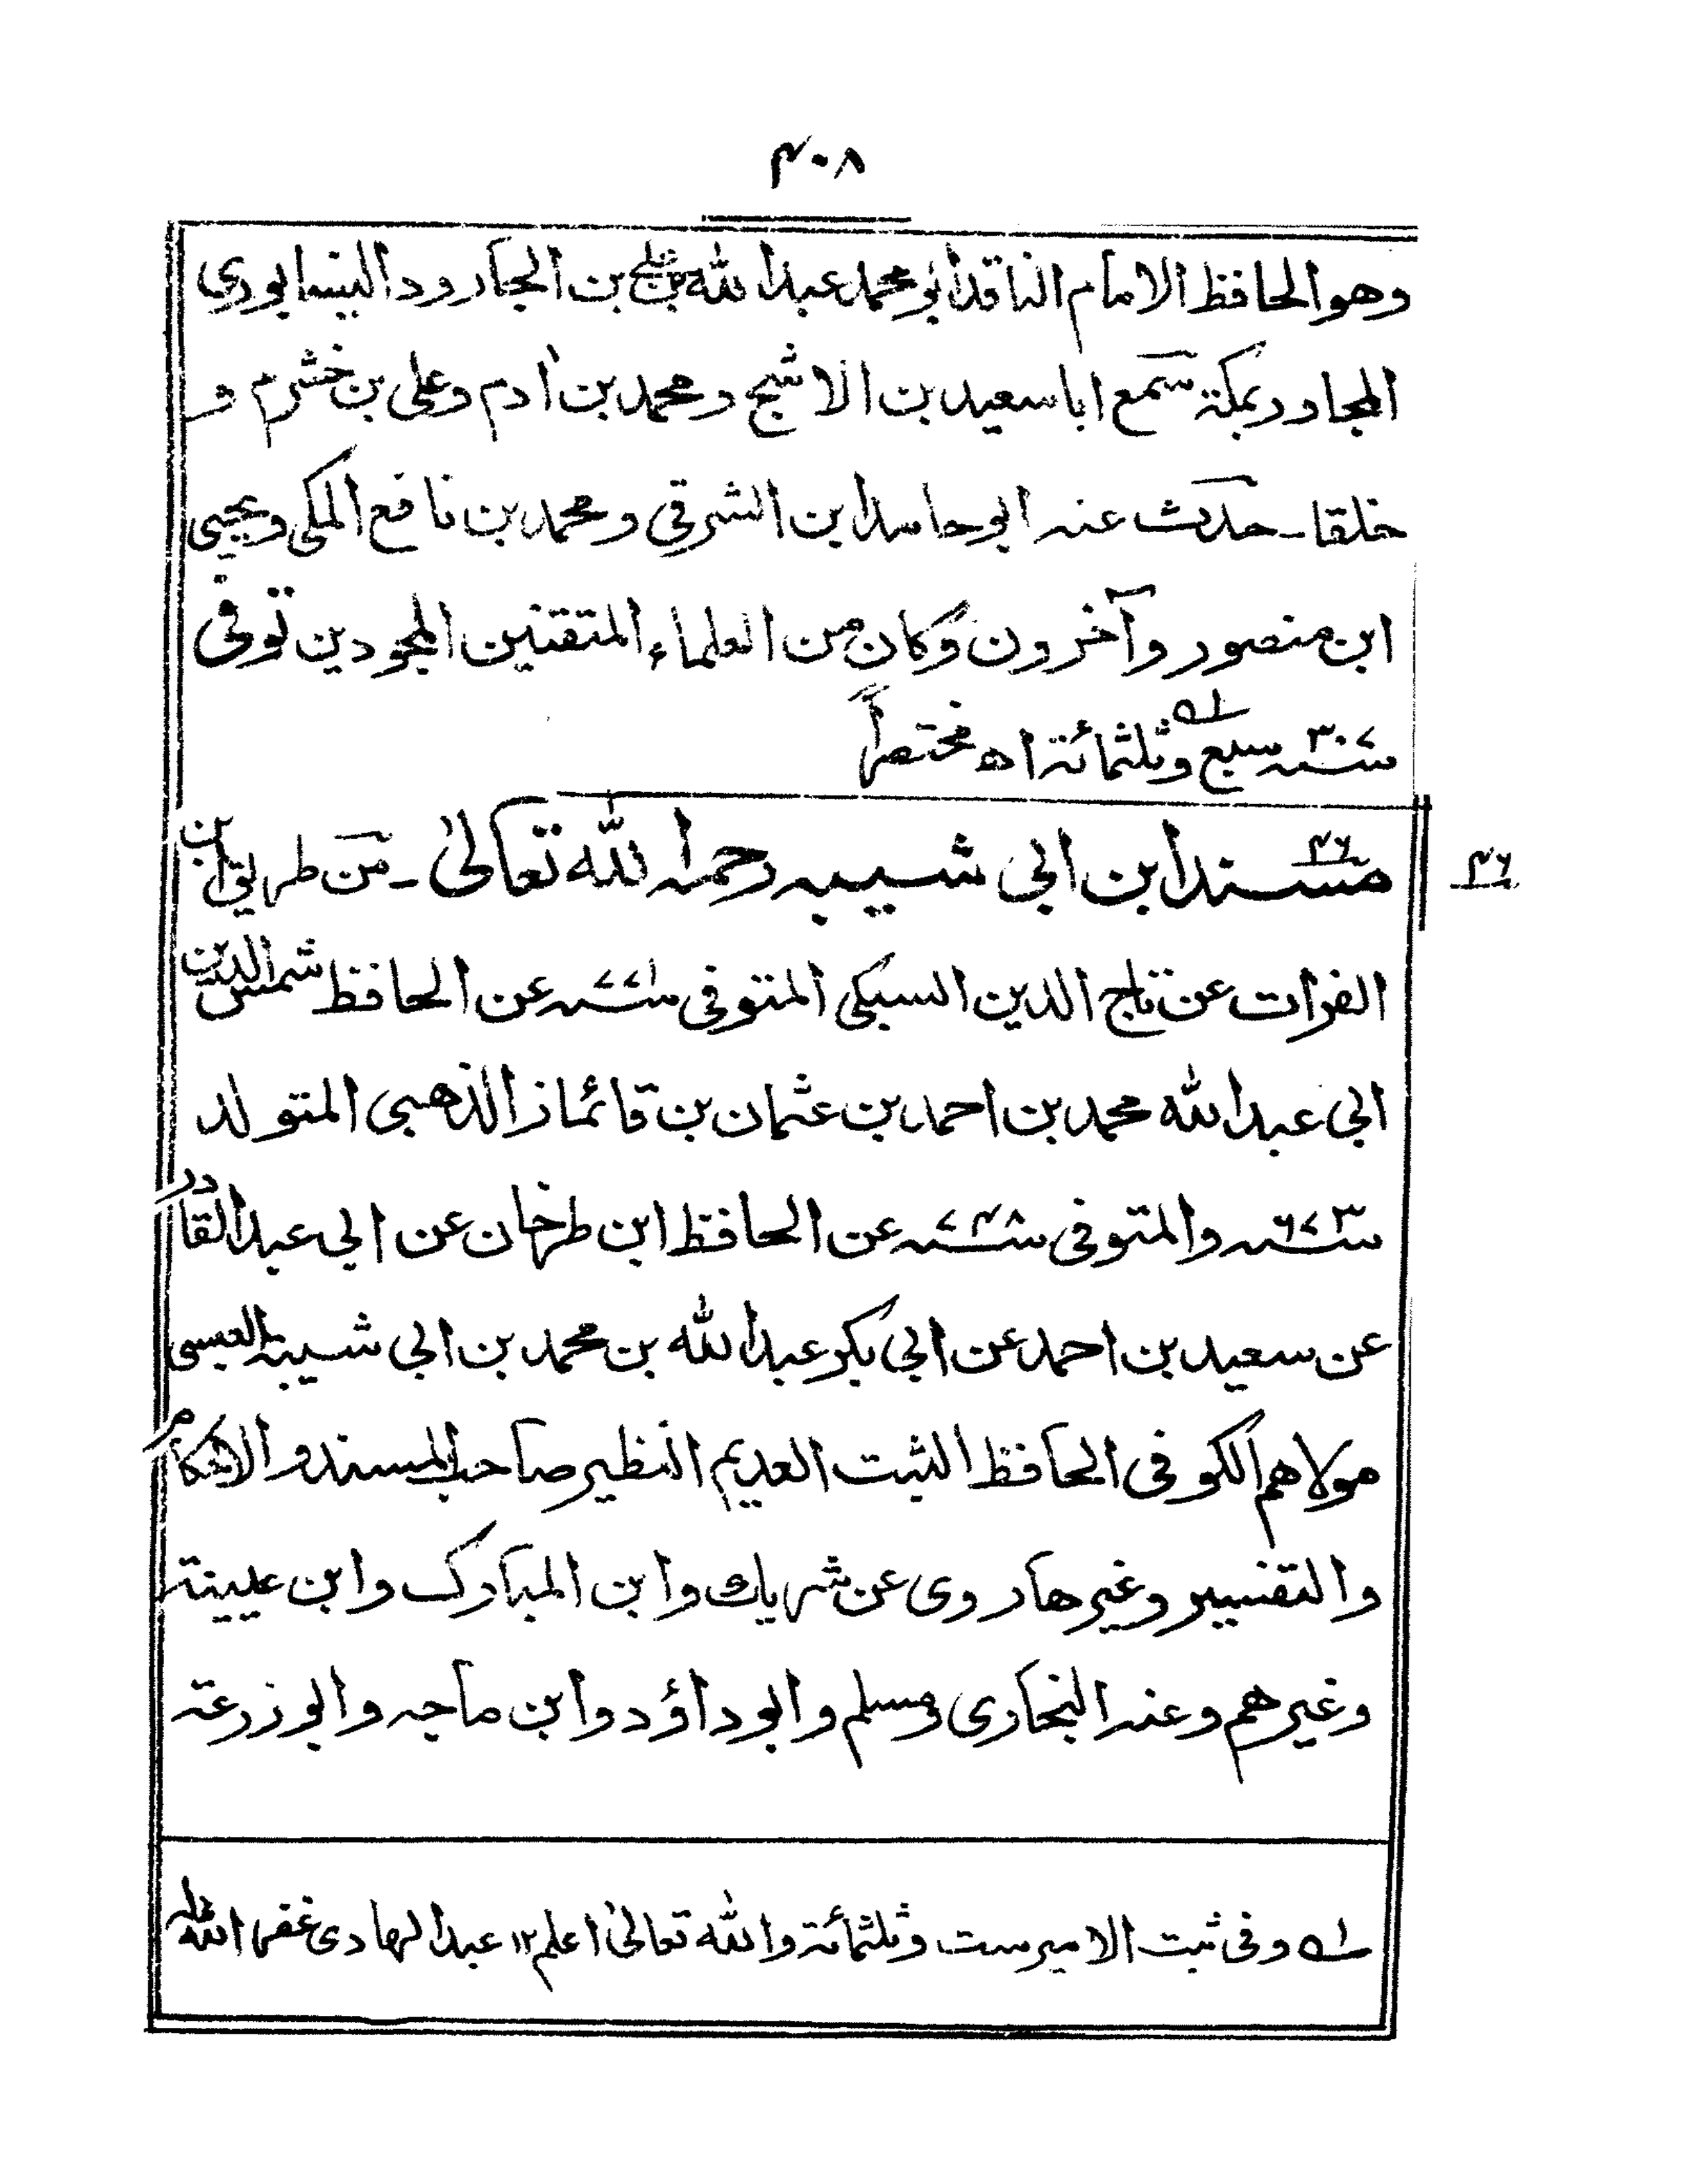 ٤٠٨
وهو الحافظ الامام الناقد ابو محمد عبد الله بن علي بن الجارود النيسابوري
المجاور بمكة سمع ابا سعيد بن الاشج ومحمد بن ادم وعلى بن خشرم و
خلقا ـ حدث عنه ابو حامد ابن الشرقي ومحمد بن نافع المكي ويحيى
ابن منصور وآخرون وكان من العلماء المتقنين المجودين توفى
سنة ٣٠٧ سبع وثلثمائة اه مختصراً
٤٦
مسند ابن ابي شيبه رحمه الله تعالىٰ ـ من طريق ابن
الفرات عن تاج الدين السبكي المتوفى سنة ٧٧١ عن الحافظ شمس الدين
ابي عبد الله محمد بن احمد بن عثمان بن قائماز الذهبي المتولد
سنة ٦٧٣ والمتوفى سنة ٧٤٨ عن الحافظ ابن طرخان عن ابي عبد القادر
عن سعيد بن احمد عن ابي بكر عبد الله بن محمد بن ابي شيبة العبسي
مولاهم الكوفى الحافظ الثبت العديم النظير صاحب المسند والاحكام
والتفسير وغيرها روى عن شريك وابن المبارك وابن عيينة
وغيرهم وعنه البخاري ومسلم وابو داؤد وابن ماجه وابو زرعة
له وفى ثبت الامير ست وثلثمائة والله تعالىٰ اعلم ١٢ عبد الهادى غفر الله له